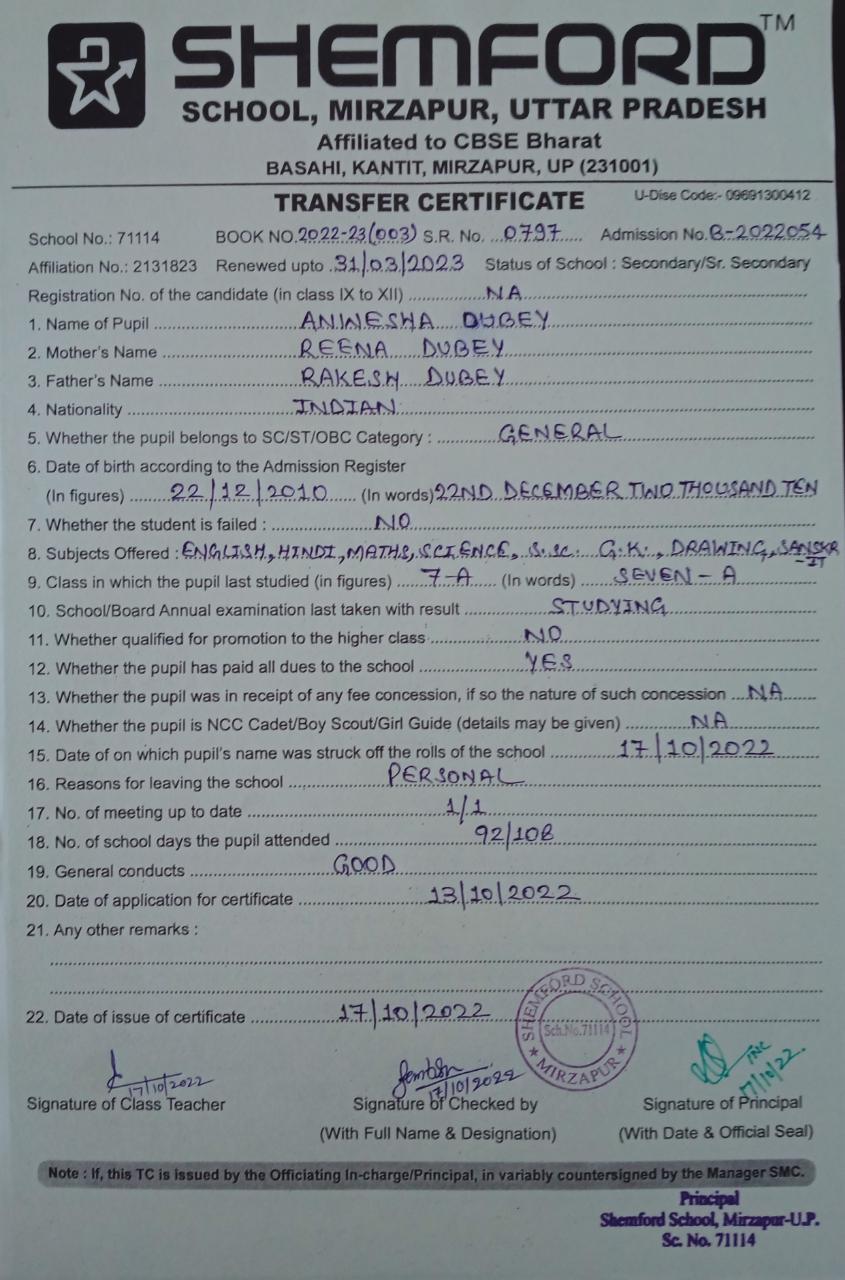 SHEMFORD TM
SCHOOL, MIRZAPUR, UTTAR PRADESH
Affiliated to CBSE Bharat
BASAHI, KANTIT, MIRZAPUR, UP (231001)
TRANSFER CERTIFICATE U-Dise Code:- 09691300412
School No.: 71114 BOOK NO. 2022-23(003) S.R. No. ...0797..... Admission No. B-2022054
Affiliation No.: 2131823 Renewed upto .31/03/2023 Status of School : Secondary/Sr. Secondary
Registration No. of the candidate (in class IX to XII) .......... NA
1. Name of Pupil .......... ANWESHA DUBEY
2. Mother's Name .......... REENA DUBEY
3. Father's Name .......... RAKESH DUBEY
4. Nationality .......... INDIAN
5. Whether the pupil belongs to SC/ST/OBC Category : .......... GENERAL
6. Date of birth according to the Admission Register
(In figures) ......... 22/12/2010 ...... (In words) 22ND DECEMBER TWO THOUSAND TEN
7. Whether the student is failed : .......... NO
8. Subjects Offered : ENGLISH, HINDI, MATHS, SCIENCE, S.SC. G.K., DRAWING, SANSKR-IT
9. Class in which the pupil last studied (in figures) .... 7-A ..... (In words) ...... SEVEN - A
10. School/Board Annual examination last taken with result .......... STUDYING
11. Whether qualified for promotion to the higher class .......... NO
12. Whether the pupil has paid all dues to the school .......... YES
13. Whether the pupil was in receipt of any fee concession, if so the nature of such concession ... NA
14. Whether the pupil is NCC Cadet/Boy Scout/Girl Guide (details may be given) .......... NA
15. Date of on which pupil's name was struck off the rolls of the school .......... 17/10/2022
16. Reasons for leaving the school .......... PERSONAL
17. No. of meeting up to date .......... 1/1
18. No. of school days the pupil attended .......... 92/108
19. General conducts .......... GOOD
20. Date of application for certificate .......... 13/10/2022
21. Any other remarks :
22. Date of issue of certificate .......... 17/10/2022
SHEMFORD SCHOOL
Sch.No.71114
★ MIRZAPUR ★
17/10/2022 17/10/2022 17/10/22
Signature of Class Teacher Signature of Checked by Signature of Principal
(With Full Name & Designation) (With Date & Official Seal)
Note : If, this TC is issued by the Officiating In-charge/Principal, in variably countersigned by the Manager SMC.
Principal
Shemford School, Mirzapur-U.P.
Sc. No. 71114